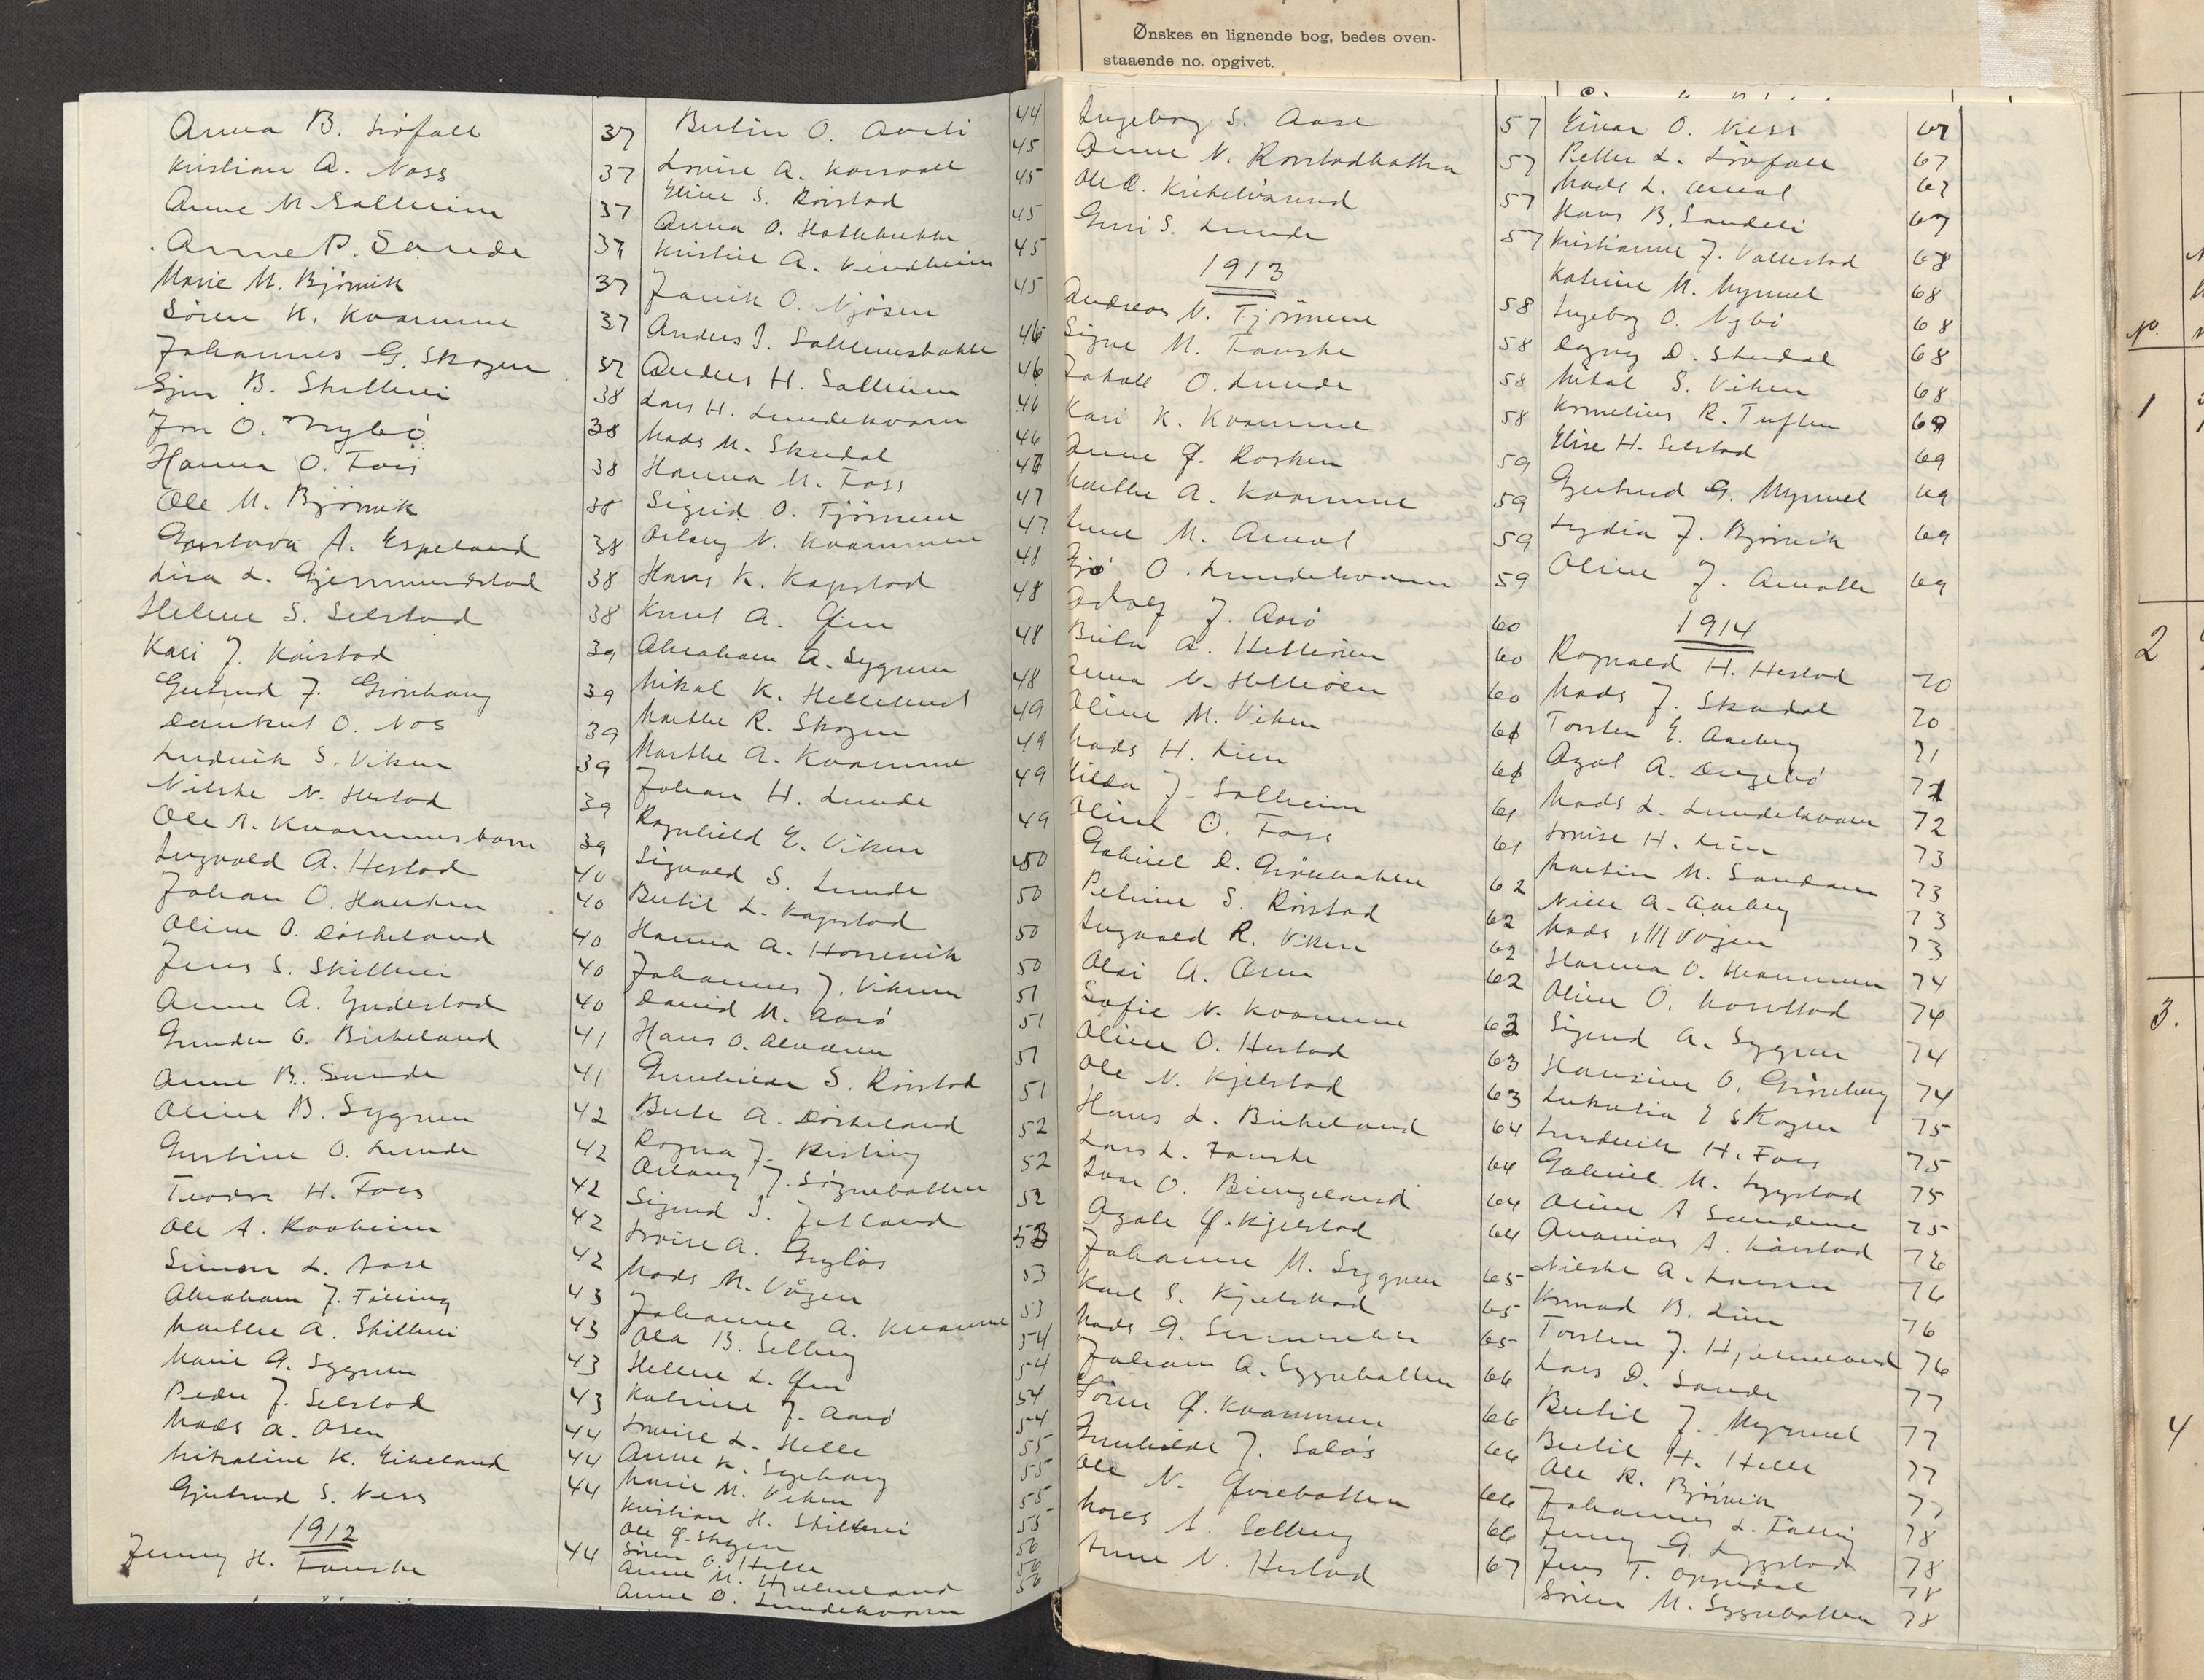 Ønskes en lignende bog, bedes oven-
staaende no. opgivet.
Anna B. Liøfall 37
Kristian A. Nass 37
Anne M Sollheim 37
Anne P. Sande 37
Marie M. Bjørnvik 37
Søren K. Kvamme 37
Johannes G. Skogen 37
B. Skilbrei 38
Jon O. Nybø 38
Hanna O. Foss 38
Ole M. Bjørnvik 38
Gustava A. Espeland 38
Lisa L. Gjermundstad 38
Helene S. Selstad 38
Kari J. Kårstad 39
Gjertrud J. Grønhaug 39
O. Nos 39
Ludvik S. Viken 39
Nilske N. Hestad 39
Ole A. 39
Ingvald A. Hestad 40
Johan O. Hauken 40
Oline O. Døskeland 40
Jens S. Skilbrei 40
Anne A. Yndestad 40
Gunder O. Birkeland 41
Anne B. Sande 41
Oline B. Sygnen 42
Gurtine O. Lunde 42
Teodor H. Foss 42
Ole A. Kaaheim 42
Simon L. Aase 42
Abraham J. Fålling 43
Marthe A. Skilbrei 43
Marie G. Sygnen 43
Peder J. Selstad 43
Mads A. Osen 44
Mikaline K. Eikeland 44
Gjertrud S. Ness 44
1912
Jenny H. Fauske 44
Bertin O. 44
Lovise A. 45
Eline S. Rørstad 45
Anna O. Hattebakke 45
Kristine A. Vindheim 45
Janik O. Njøsen 45
Anders J. Solheimsbakke 46
Anders H. Sollheim 46
Lars H. Lundekvam 46
Mads M. Skredal 46
Hanna M. Foss 47
Sigrid O. Tjønneun 47
Aslaug N. Kvammen 47
Hans K. Kapstad 48
Knut A. 48
Abraham A. Sygnen 48
Mikal K. 48
Marthe R. Skogen 49
Marthe A. Kvamme 49
Johan H. Lunde 49
Ragnhild E. Viken 49
Sigvald S. Lunde 50
Bertil L. Kapstad 50
Hanna A. Horsevik 50
Johannes J. Viken 50
David M. Aarø 51
Hans O. 51
Gunhilda S. Rørstad 51
Berte A. Døskeland 51
Ragna J. Kisling 52
Aslaug J. Søgnebotten 52
Sigurd S. Jetland 52
Lovise A. Grytås 53
Mads M. Vågen 53
Johanne A. Kvamme 53
Ola B. Selberg 54
Helene L. 54
Katrine J. Aarø 54
Lovise L. Helle 54
Anne K. 55
Marie M. Viken 55
Kristian H. Skilbrei 55
Ole Skogen 55
Søren O. Helle 56
Anne M. Hjelmeland 56
Anne O. Lundekvam 56
Ingeborg S. Aase 57
Anne N. Rørstadbotten 57
Ole O. Kirkelisund 57
Guri S. Lunde 57
1913
Andreas N. Tjønneun 58
Signe M. Fauske 58
Jakob O. Lunde 58
Kari K. Kvamme 58
Anne Q. Rosken 59
Marthe A. Kvamme 59
Lene M. 59
O. Lundekvam 59
Adolf J. Aarø 60
Berta A. 60
Anna N. 60
Oline M. Viken 61
Mads H. Lien 61
Hilda J. Sollheim 61
Oline O. Foss 61
Gabriel D. Grønbakken 62
Petrine S. Rørstad 62
Ingvald R. Viken 62
A. Osen 62
Sofie N. Kvamme 63
Oline O. Hestad 63
Ole N. Kjelstad 63
Hans L. Birkeland 64
Lars L. Fauske 64
Ivar O. 64
Agate Q. Kjelstad 64
Johanne M. Sygnen 65
Karl S. Kjelstad 65
Mads G. 65
Johan A. Sygnebotten 66
Søren Q. Kvammen 66
Gunhilde J. Solås 66
Ole N. 66
Moses A. Selberg 66
Anne N. Hestad 67
Einar O. Ness 67
Petter L. Liøfall 67
Mads L. 67
Hans B. Sandeli 67
Kristianne J. Vallestad 68
Katrine M. Myrmel 68
Ingeborg O. Nybø 68
Dagny D. Skredal 68
Mikal S. Viken 68
Kornelius R. Tuften 69
Elise H. Selstad 69
Gjertrud G. Myrmel 69
Lydia J. Bjørnvik 69
Oline J. 69
1914
Ragnvald H. Hestad 70
Mads J. Skredal 70
Torsten E. Aarberg 71
Agot A. Engebø 71
Mads L. Lundekvam 72
Lovise H. Lien 73
Martin M. Sandanen 73
Nille A. Aarberg 73
Mads M Vågen 73
Hanna O. Kvammen 74
Oline O. 74
Sigurd A. Sygnen 74
Hansine O. Grønberg 74
Lukretia E Skogen 75
Ludvik H. Foss 75
Gabriel M. Lyngstad 75
Oline A Sandene 75
Ananias A. Kårstad 76
Nilske A. Larsen 76
Konrad B. Lien 76
Torsten J. Hjelmeland 76
Lars D. Sande 77
Bertil J. Myrmel 77
Bertil H. Helle 77
Ole R. Bjørnvik 77
Johannes L. Fålling 78
Jenny G. Lyngstad 78
Jens T. Oppedal 78
Søren M. Sygnebotten 78
No.
1
2
3.
4